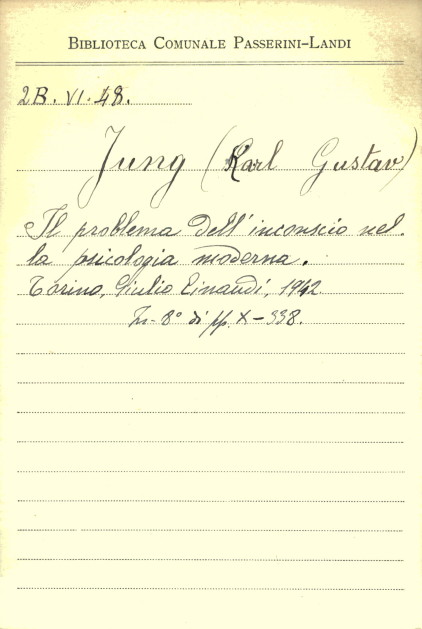 BIBLIOTECA COMUNALE PASSERINI-LANDI
2B. VI. 48.
Jung (Karl Gustav)
Il problema dell'inconscio nel-
la psicologia moderna.
Torino, Giulio Einaudi, 1942
In-8° di pp. X-338.